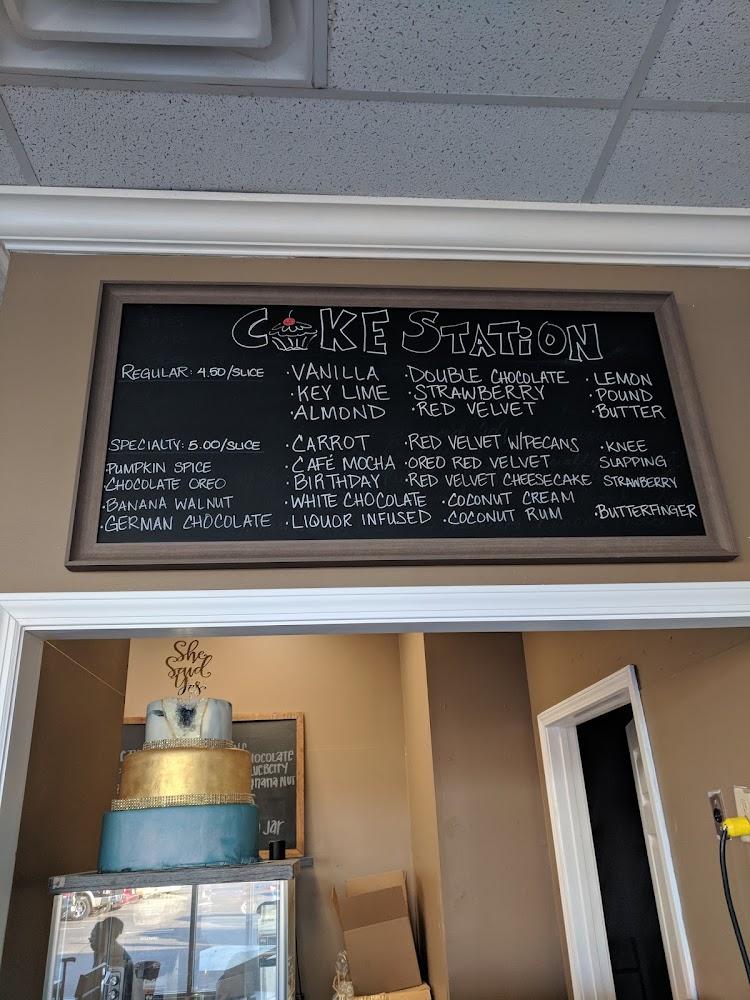 CAKE STATION
REGULAR: 4.50/SLICE
·VANILLA ·DOUBLE CHOCOLATE ·LEMON
·KEY LIME ·STRAWBERRY ·POUND
·ALMOND ·RED VELVET ·BUTTER
SPECIALTY: 5.00/SLICE
·CARROT ·RED VELVET W/PECANS ·KNEE
·PUMPKIN SPICE ·CAFÉ MOCHA ·OREO RED VELVET SLAPPING
·CHOCOLATE OREO ·BIRTHDAY ·RED VELVET CHEESECAKE STRAWBERRY
·BANANA WALNUT ·WHITE CHOCOLATE ·COCONUT CREAM
·GERMAN CHOCOLATE ·LIQUOR INFUSED ·COCONUT RUM ·BUTTERFINGER
She
Said
Yes
JAR